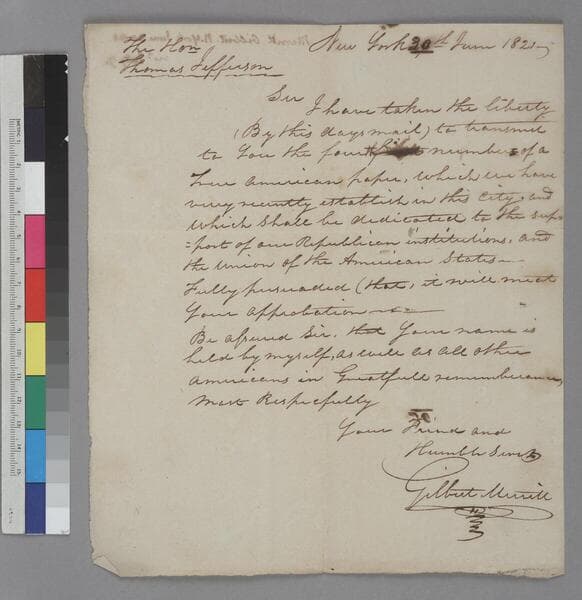 The Hon
Thomas Jefferson
New York 30th June 182
Sir
I have taken the liberty
(By this days mail) to transmit
to You the fourth number of a
True American paper, which we have
very recently establish in this City, and
which shall be dedicated to the sup=
=port of our Republican institutions, and
the Union of the American States—
Fully persuaded (that, it will meet
Your approbation —
Be assured Sir. that Your name is
held by myself, as well as all other
Americans in Greatfull rememberance,
Most Respecfully
Your Frind and
Humble Servt
Gilbert Merritt